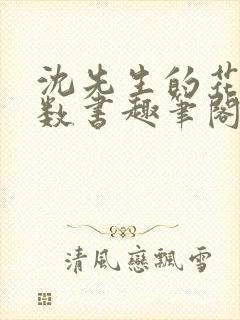 沈先生的花
数书趣笔阁
清風戀飄雪